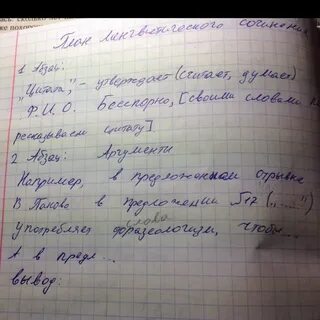 сколько лет
же похорон
План лингвистического сочинения
1 Абзац:
"Цитата", - утверждает (считает, думает)
Ф.И.О. Бесспорно, [своими словами
рассказываем цитату].
2 Абзац: Аргументы
Например, в предложенном отрывке
В. Панова в предложении №17 („......")
слова
употребляет фразеологизм, чтобы...
А в предл...
вывод: